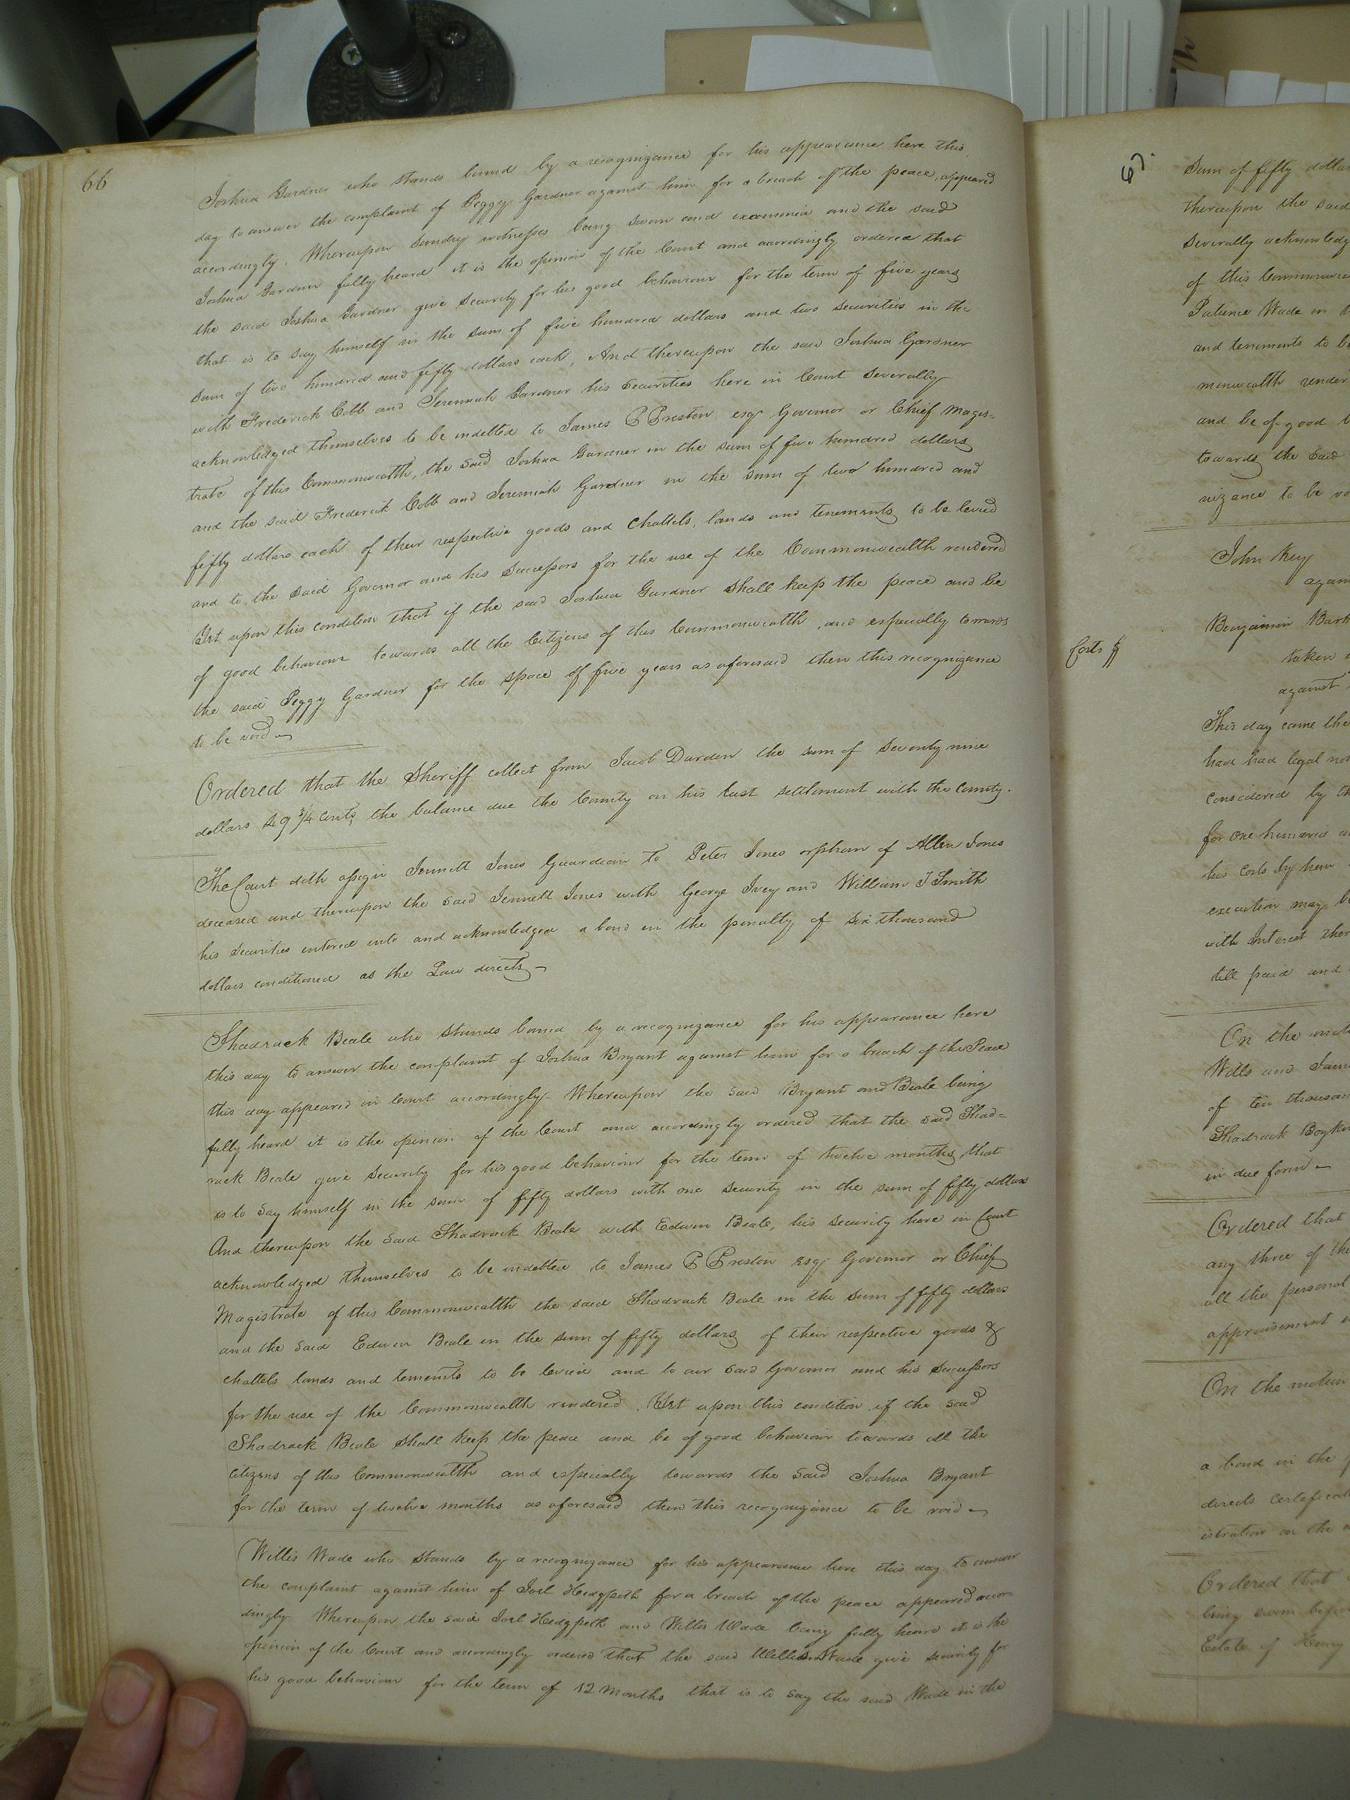 66
Joshua Gardner who stands bound by a recognizance for his appearance here this
day to answer the complaint of Peggy Gardner against him for a breach of the peace, appeared
accordingly. Whereupon sundry witnesses being sworn and examined and the said
Joshua Gardner fully heard it is the opinion of the Court and accordingly ordered that
the said Joshua Gardner give security for his good behaviour for the term of five years
that is to say himself in the sum of five hundred dollars and two securities in the
sum of two hundred and fifty dollars each, And thereupon the said Joshua Gardner
with Frederick Cobb and Jeremiah Gardner his Securities here in Court severally
acknowledged themselves to be indebted to James P Preston esqr Governor or Chief Magis-
trate of this Commonwealth, the said Joshua Gardner in the sum of five hundred dollars
and the said Frederick Cobb and Jeremiah Gardner in the sum of two hundred and
fifty dollars each of their respective goods and Chattels, lands and tenements to be levied
and to the said Governor and his Successors for the use of the Commonwealth rendered
Yet upon this condition that if the said Joshua Gardner Shall keep the peace and be
of good behaviour towards all the Citizens of this Commonwealth, and especially towards
the said Peggy Gardner for the space of five years as aforesaid then this recognizance
to be void
Ordered that the Sheriff collect from Jacob Darden the sum of seventy nine
dollars 49 3/4 Cents, the balance due the County on his last settlement with the County.
The Court doth assign Jennett Jones Guardian to Peter Jones orphan of Allen Jones
deceased and thereupon the said Jennett Jones with George Ivey and William J Smith
his securities entered into and acknowledged a bond in the penalty of six thousand
dollars conditioned as the Law directs
Shadrack Beale who stands bound by a recognizance for his appearance here
this day to answer the complaint of Joshua Bryant against him for a breach of the Peace
this day appeared in Court accordingly Whereupon the said Bryant and Beale being
fully heard it is the opinion of the Court and accordingly ordered that the said Shad=
rack Beale give security for his good behaviour for the term of twelve months that
is to say himself in the sum of fifty dollars with one security in the sum of fifty dollars
And thereupon the said Shadrack Beale with Edwin Beale, his security here in Court
acknowledged themselves to be indebted to James P Preston esqr Governor or Chief
Magistrate of this Commonwealth the said Shadrack Beale in the sum of fifty dollars
and the said Edwin Beale in the sum of fifty dollars of their respective goods &
chattels lands and tements to be levied and to our said Governor and his Successors
for the use of the Commonwealth rendered. Yet upon this condition if the said
Shadrack Beale shall keep the peace and be of good behaviour towards all the
citizens of this Commonwealth and especially towards the said Joshua Bryant
for the term of twelve months as aforesaid then this recognizance to be void
Willis Wade who stands by a recognizance for his appearance here this day to answer
the complaint against him of Joel Hedgpeth for a breach of the peace appeared accor
dingly Whereupon the said Joel Hedgpeth and Willis Wade being fully heard it is the
opinion of the Court and accordingly ordered that the said Willis Wade give security for
his good behaviour for the term of 12 Months that is to say the said Wade in the
67.
Sum of fifty dollars
thereupon the said
severally acknowledg
of this Commonwea
Patience Wade in
and tenements to be
monwealth render
and be of good
towards the said
nizance to be vo
John Key
again
Benjamin Bar
Costs
taken
against
This day came the
have had legal no
considered by th
for one hundred
his costs by him
execution may be
with Interest ther
till paid and
On the moti
Wills and Jam
of ten thousan
Shadrack Boyki
in due form
Ordered that
any three of the
all the personal
appraisement
On the motion
a bond in the
directs certificat
istration on the
Ordered that
being sworn befo
Estate of Henry